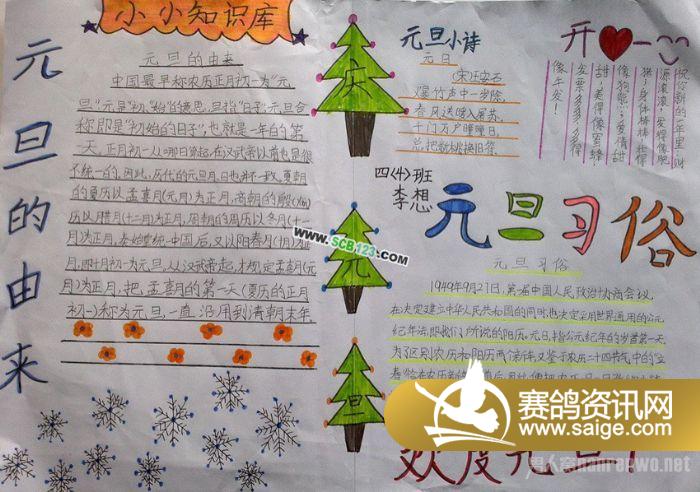 小小知识库
元旦的由来
元旦的由来
中国最早称农历正月初一为“元
旦”,“元”是“初”、“始”的意思,旦指“日子”,元旦合
称即是“初始的日子”,也就是一年的第
一天。正月初一从哪日算起,在汉武帝以前也是很
不统一的。因此,历代的元旦月日也并不一致。夏朝
的夏历以孟喜月(元月)为正月,商朝的殷
历以腊月(十二月)为正月,周朝的周历以冬月(十一
月)为正月。秦始皇统一中国后,又以阳春月(十月)为正
月,即十月初一为元旦。从汉武帝起,才规定孟喜月(元
月)为正月,把孟喜月的第一天(夏历的正月
初一)称为元旦,一直沿用到清朝末年。
庆
元
旦
元旦小诗
元日
(宋)王安石
爆竹声中一岁除,
春风送暖入屠苏。
千门万户曈曈日,
总把新桃换旧符。
开心一
祝你新的一年里财
源滚滚,发得像肥
猪;身体棒棒,壮得
像狗熊;爱情甜
甜,美得像蜜蜂;
发票多多,多得
像牛毛!
四(4)班
李想
元旦习俗
元旦习俗
1949年9月27日,第一届中国人民政治协商会议,
在决定建立中华人民共和国的同时,也决定采用世界通用的公元
纪年法,即我们所说的阳历。元旦,指公元纪年的岁首第一天。
为了区别农历和阳历两个新年,又鉴于农历二十四节气中的“立
春”恰在农历新年的前后,
欢度元旦!
www.SCB123.com
赛鸽资讯网
www.saige.com
男人窝nanrenwo.net